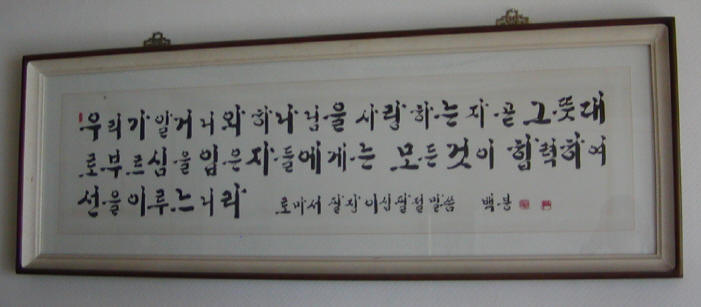 우리가 알거니와 하나님을 사랑하는 자 곧 그 뜻대
로 부르심을 입은 자들에게는 모든 것이 협력하여
선을 이루느니라 로마서 팔장 이십팔절 말씀 백분